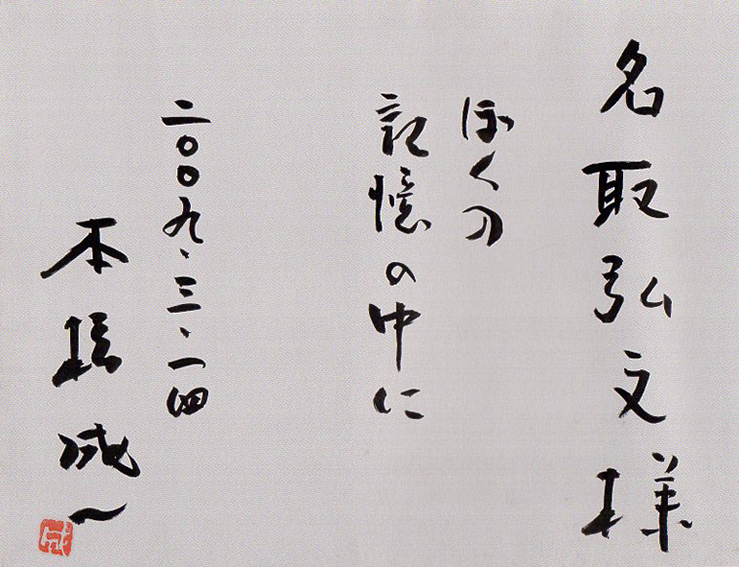 名取弘文様
ぼくの
記憶の中に
二〇〇九、三、一四
本橋成一